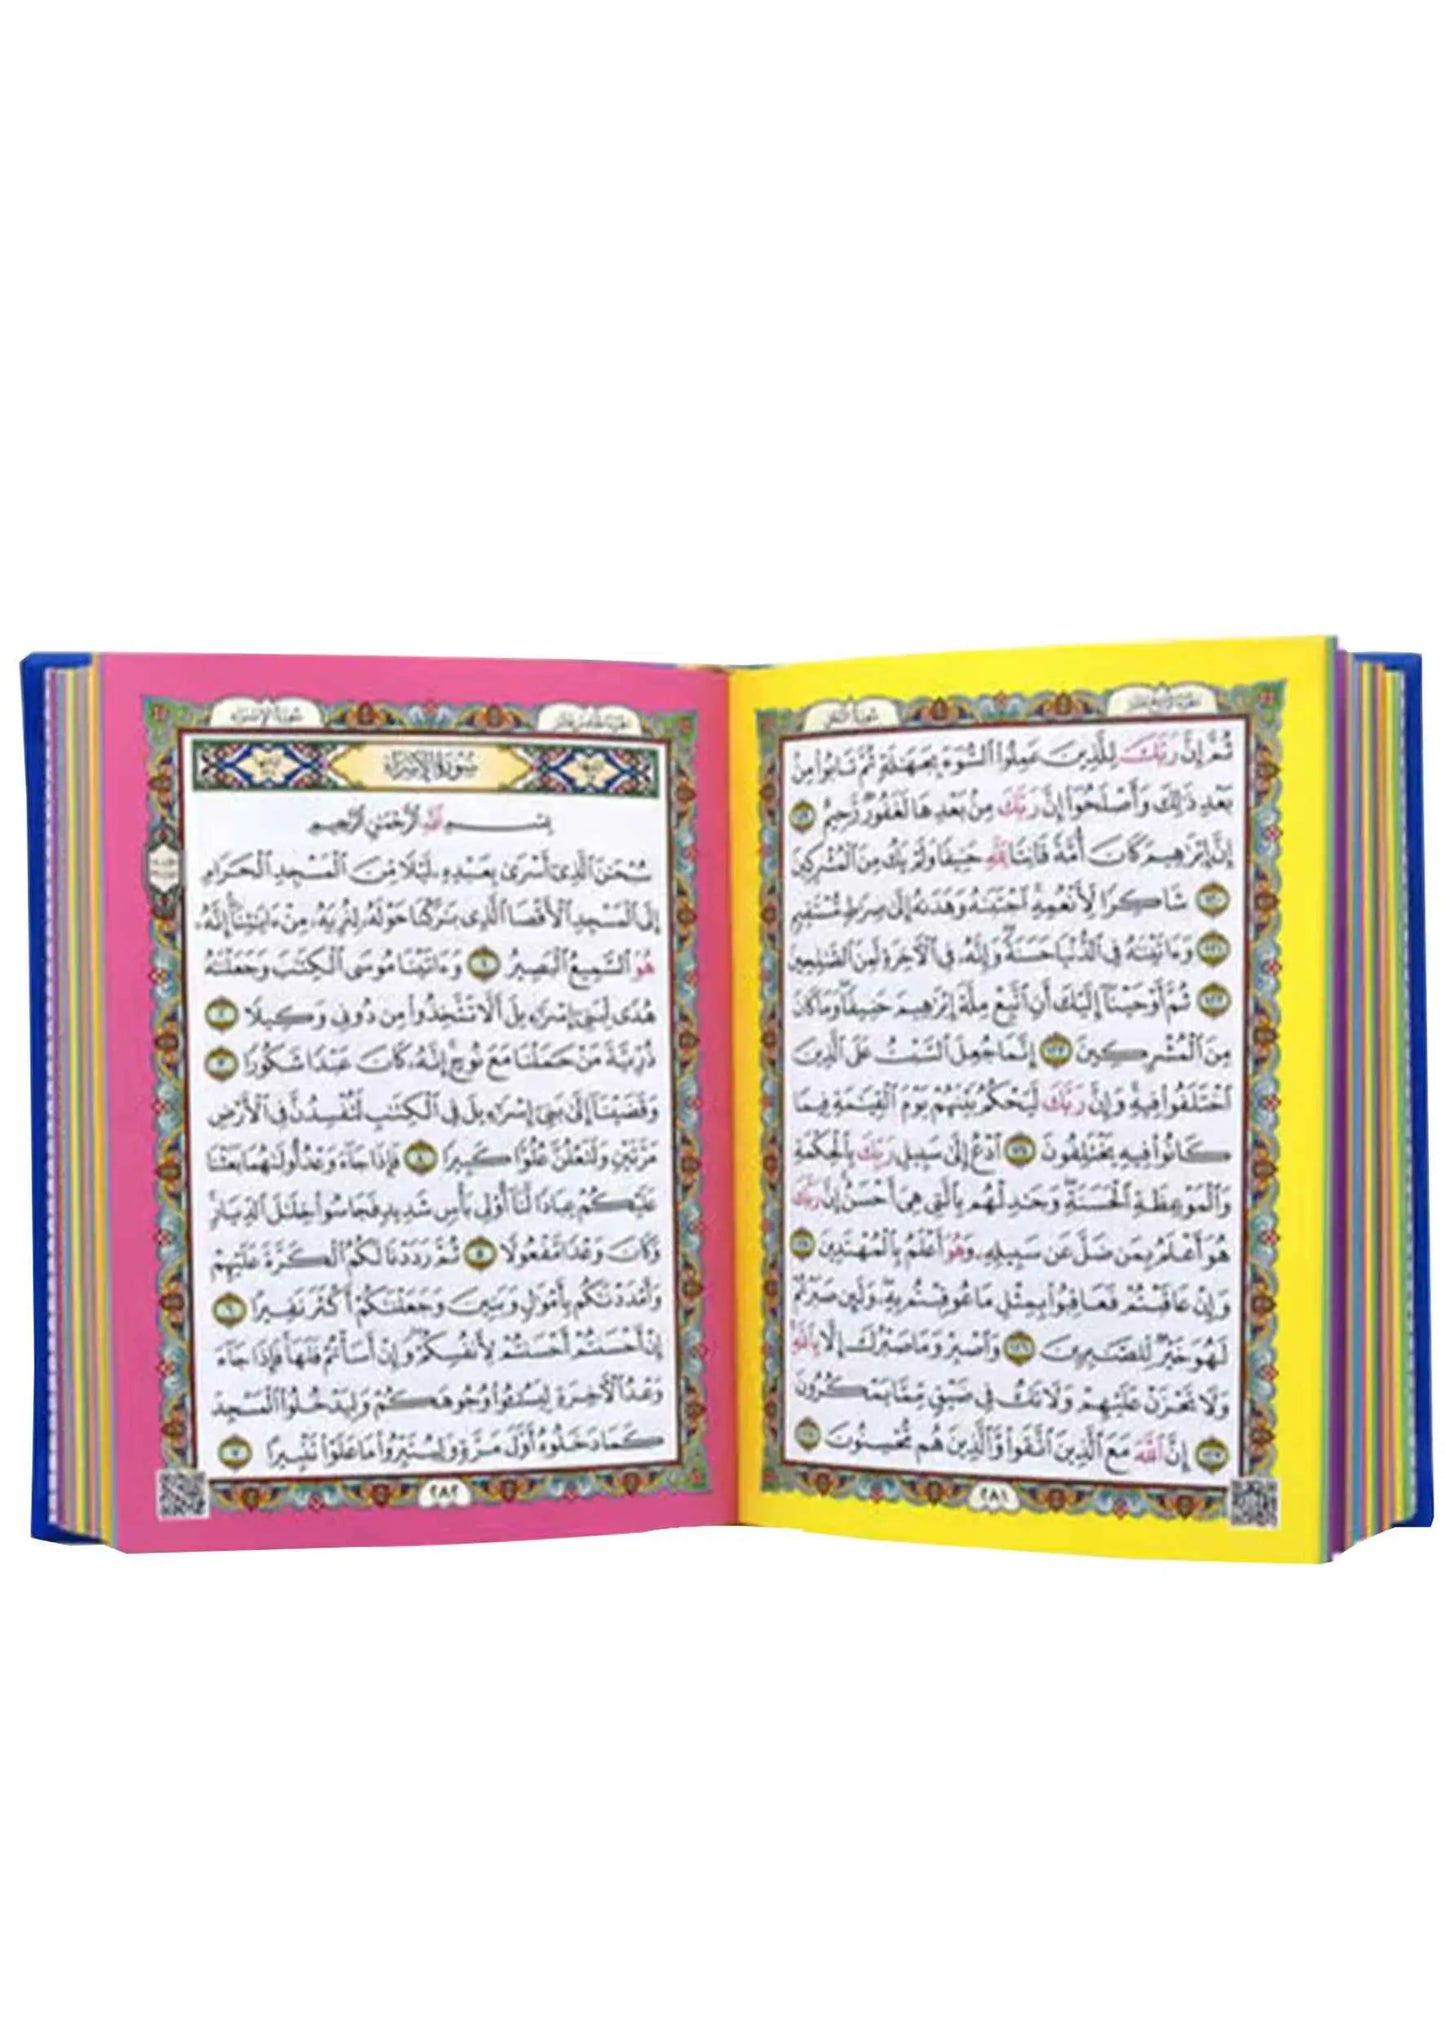 سُورَةُ النَّحْلِ
ثُمَّ إِنَّ رَبَّكَ لِلَّذِينَ عَمِلُوا۟ ٱلسُّوٓءَ بِجَهَٰلَةٍ ثُمَّ تَابُوا۟ مِنۢ
بَعْدِ ذَٰلِكَ وَأَصْلَحُوٓا۟ إِنَّ رَبَّكَ مِنۢ بَعْدِهَا لَغَفُورٌ رَّحِيمٌ ١١٩
إِنَّ إِبْرَٰهِيمَ كَانَ أُمَّةً قَانِتًا لِّلَّهِ حَنِيفًا وَلَمْ يَكُ مِنَ ٱلْمُشْرِكِينَ
١٢٠ شَاكِرًا لِّأَنْعُمِهِ ٱجْتَبَىٰهُ وَهَدَىٰهُ إِلَىٰ صِرَٰطٍ مُّسْتَقِيمٍ
١٢١ وَءَاتَيْنَٰهُ فِى ٱلدُّنْيَا حَسَنَةً وَإِنَّهُۥ فِى ٱلْءَاخِرَةِ لَمِنَ ٱلصَّٰلِحِينَ
١٢٢ ثُمَّ أَوْحَيْنَآ إِلَيْكَ أَنِ ٱتَّبِعْ مِلَّةَ إِبْرَٰهِيمَ حَنِيفًا وَمَا كَانَ
مِنَ ٱلْمُشْرِكِينَ ١٢٣ إِنَّمَا جُعِلَ ٱلسَّبْتُ عَلَى ٱلَّذِينَ
ٱخْتَلَفُوا۟ فِيهِ وَإِنَّ رَبَّكَ لَيَحْكُمُ بَيْنَهُمْ يَوْمَ ٱلْقِيَٰمَةِ فِيمَا
كَانُوا۟ فِيهِ يَخْتَلِفُونَ ١٢٤ ٱدْعُ إِلَىٰ سَبِيلِ رَبِّكَ بِٱلْحِكْمَةِ
وَٱلْمَوْعِظَةِ ٱلْحَسَنَةِ وَجَٰدِلْهُم بِٱلَّتِى هِىَ أَحْسَنُ إِنَّ رَبَّكَ
هُوَ أَعْلَمُ بِمَن ضَلَّ عَن سَبِيلِهِۦ وَهُوَ أَعْلَمُ بِٱلْمُهْتَدِينَ ١٢٥
وَإِنْ عَاقَبْتُمْ فَعَاقِبُوا۟ بِمِثْلِ مَا عُوقِبْتُم بِهِۦ وَلَئِن صَبَرْتُمْ
لَهُوَ خَيْرٌ لِّلصَّٰبِرِينَ ١٢٦ وَٱصْبِرْ وَمَا صَبْرُكَ إِلَّا بِٱللَّهِ
وَلَا تَحْزَنْ عَلَيْهِمْ وَلَا تَكُ فِى ضَيْقٍ مِّمَّا يَمْكُرُونَ
١٢٧ إِنَّ ٱللَّهَ مَعَ ٱلَّذِينَ ٱتَّقَوا۟ وَّٱلَّذِينَ هُم مُّحْسِنُونَ ١٢٨
٢٨١
سُورَةُ الإِسْرَاءِ
سُورَةُ الإِسْرَاءِ
بِسْمِ ٱللَّهِ ٱلرَّحْمَٰنِ ٱلرَّحِيمِ
سُبْحَٰنَ ٱلَّذِىٓ أَسْرَىٰ بِعَبْدِهِۦ لَيْلًا مِّنَ ٱلْمَسْجِدِ ٱلْحَرَامِ
إِلَى ٱلْمَسْجِدِ ٱلْأَقْصَا ٱلَّذِى بَٰرَكْنَا حَوْلَهُۥ لِنُرِيَهُۥ مِنْ ءَايَٰتِنَآ إِنَّهُۥ
هُوَ ٱلسَّمِيعُ ٱلْبَصِيرُ ١ وَءَاتَيْنَا مُوسَى ٱلْكِتَٰبَ وَجَعَلْنَٰهُ
هُدًى لِّبَنِىٓ إِسْرَٰٓءِيلَ أَلَّا تَتَّخِذُوا۟ مِن دُونِى وَكِيلًا ٢
ذُرِّيَّةَ مَنْ حَمَلْنَا مَعَ نُوحٍ إِنَّهُۥ كَانَ عَبْدًا شَكُورًا ٣
وَقَضَيْنَآ إِلَىٰ بَنِىٓ إِسْرَٰٓءِيلَ فِى ٱلْكِتَٰبِ لَتُفْسِدُنَّ فِى ٱلْأَرْضِ
مَرَّتَيْنِ وَلَتَعْلُنَّ عُلُوًّا كَبِيرًا ٤ فَإِذَا جَآءَ وَعْدُ أُولَىٰهُمَا بَعَثْنَا
عَلَيْكُمْ عِبَادًا لَّنَآ أُو۟لِى بَأْسٍ شَدِيدٍ فَجَاسُوا۟ خِلَٰلَ ٱلدِّيَارِ
وَكَانَ وَعْدًا مَّفْعُولًا ٥ ثُمَّ رَدَدْنَا لَكُمُ ٱلْكَرَّةَ عَلَيْهِمْ
وَأَمْدَدْنَٰكُم بِأَمْوَٰلٍ وَبَنِينَ وَجَعَلْنَٰكُمْ أَكْثَرَ نَفِيرًا ٦
إِنْ أَحْسَنتُمْ أَحْسَنتُمْ لِأَنفُسِكُمْ وَإِنْ أَسَأْتُمْ فَلَهَا فَإِذَا جَآءَ
وَعْدُ ٱلْءَاخِرَةِ لِيَسُۥٓـُٔوا۟ وُجُوهَكُمْ وَلِيَدْخُلُوا۟ ٱلْمَسْجِدَ
كَمَا دَخَلُوهُ أَوَّلَ مَرَّةٍ وَلِيُتَبِّرُوا۟ مَا عَلَوْا۟ تَتْبِيرًا ٧
٢٨٢